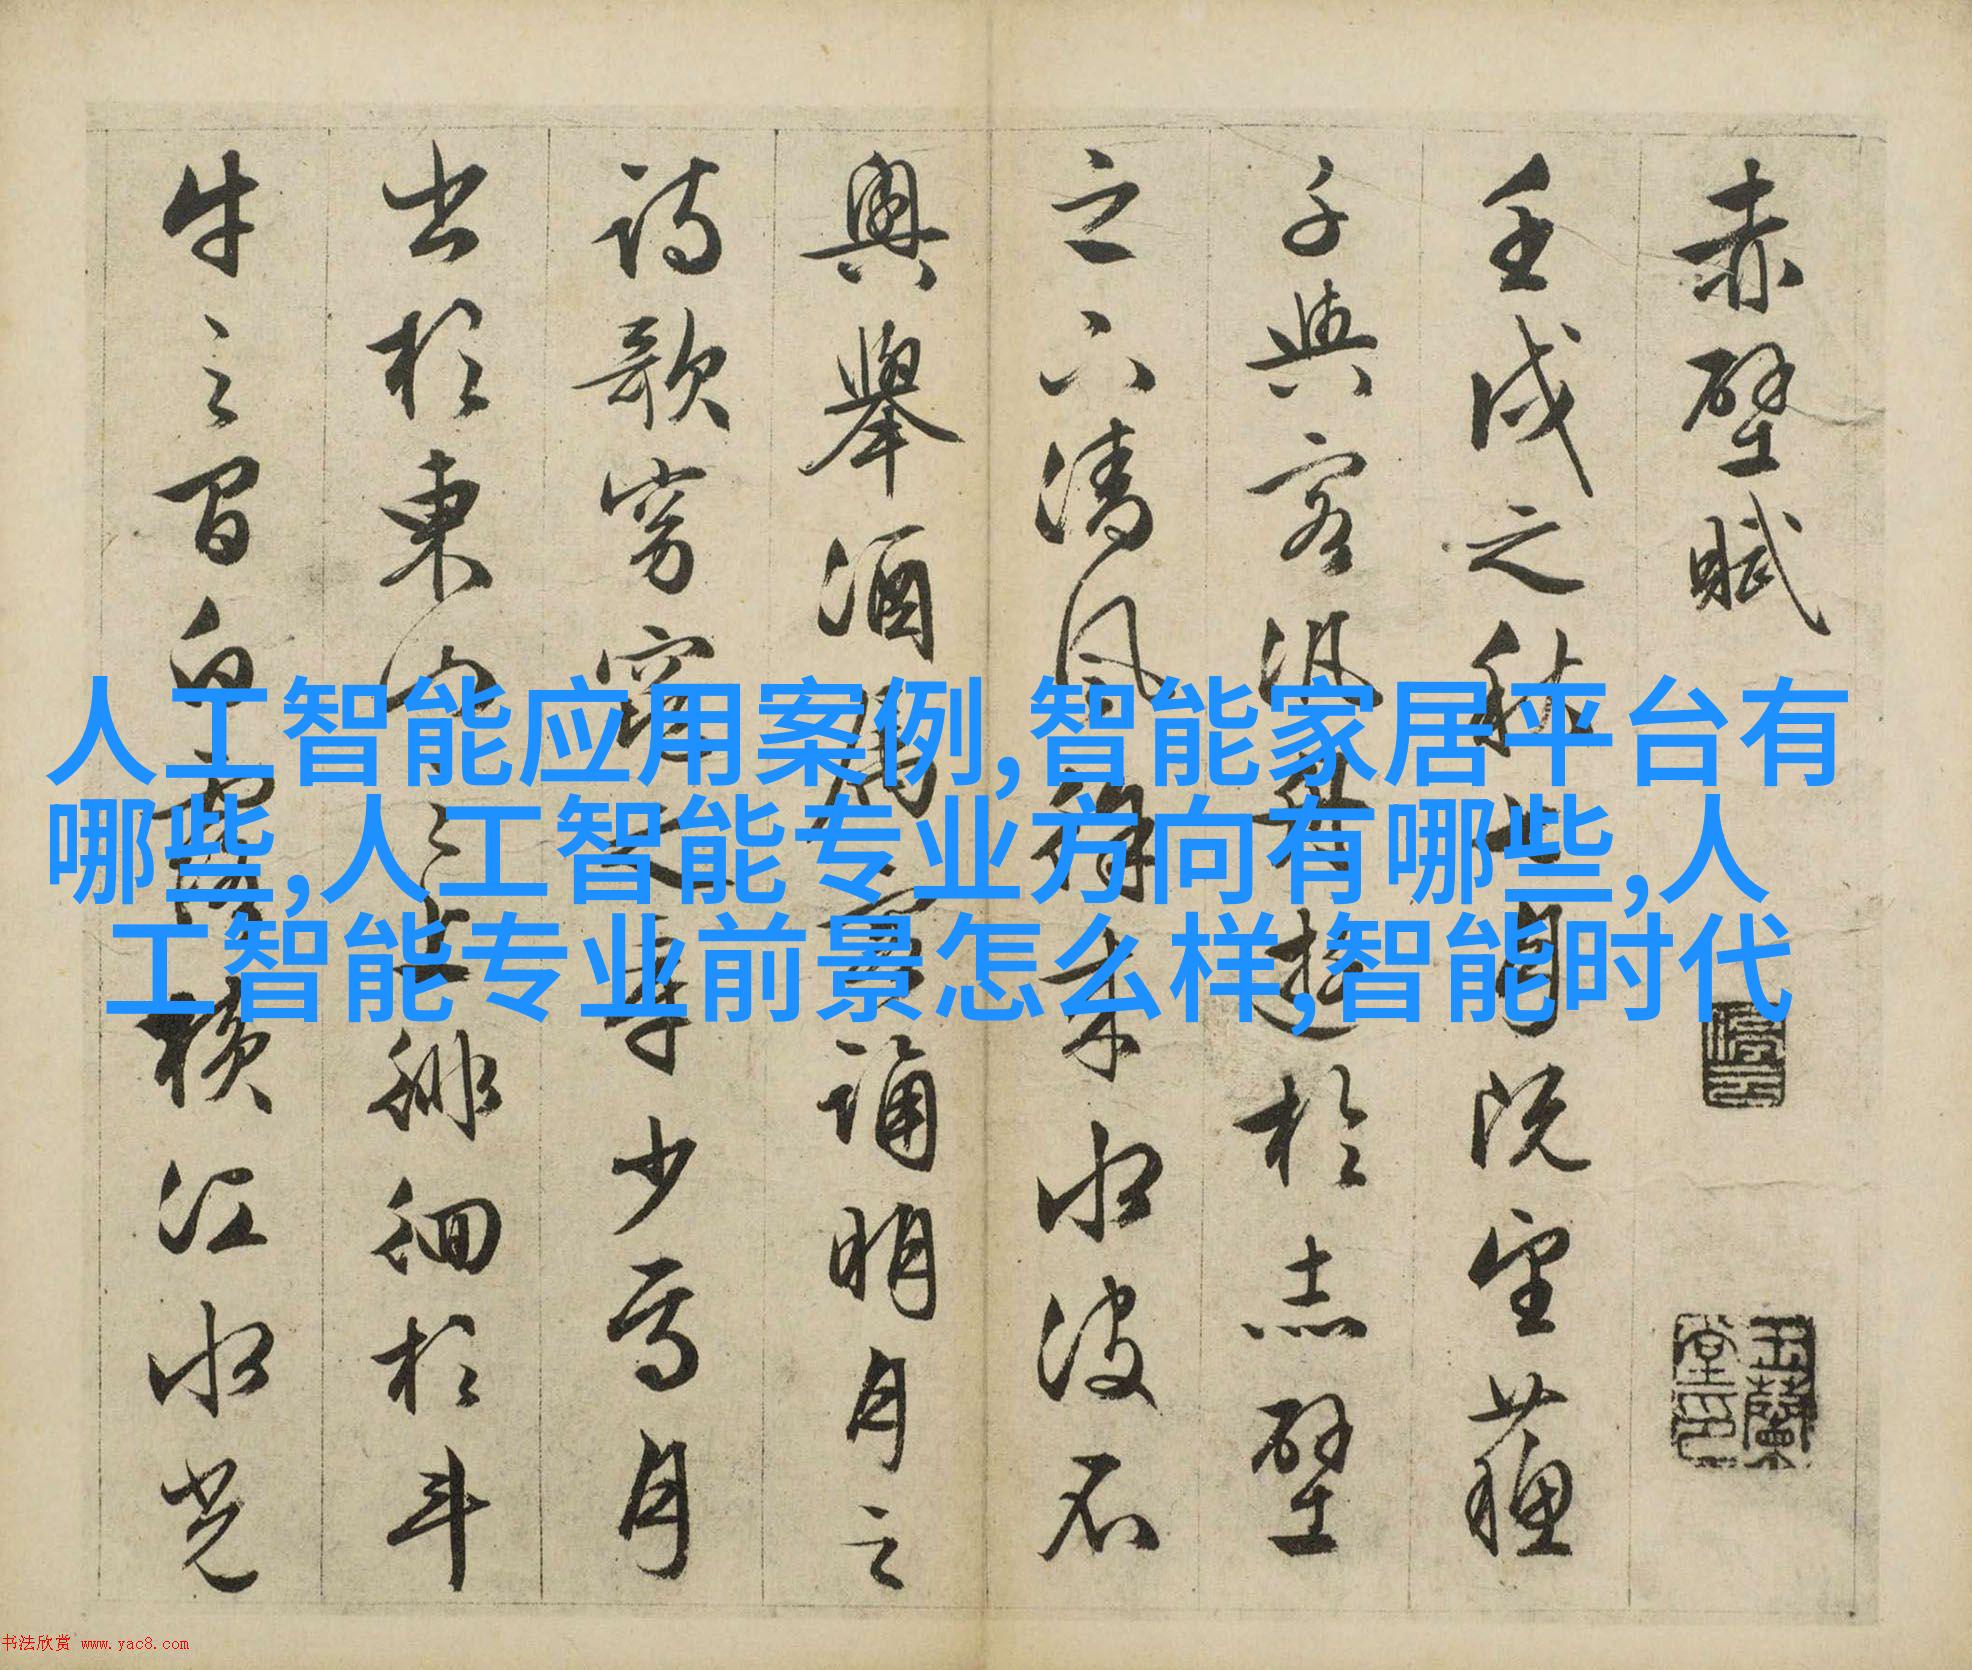 赤壁賦
停雲
玉蘭堂印
壬戌之秋七月既望蘇
子與客泛舟遊於赤壁
之下清風徐來水波不
興舉酒屬客誦明月之
詩歌窈窕之章少焉月
出於東山之上徘徊於斗
牛之間白露橫江水光
人工智能应用案例,智能家居平台有
哪些,人工智能专业方向有哪些,人
工智能专业前景怎么样,智能时代
书法欣赏 www.yac8.com